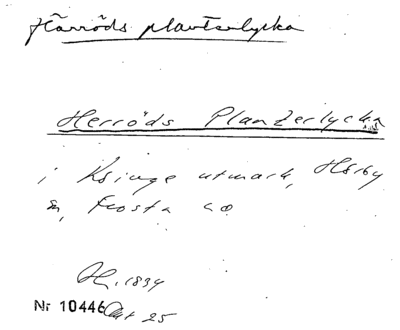 Härröds planterlycka
Herröds Planterlycka
i Ksinge utmark, Hörby
sn, Frosta hd
H. 1834
Nr 10446 Akt 25